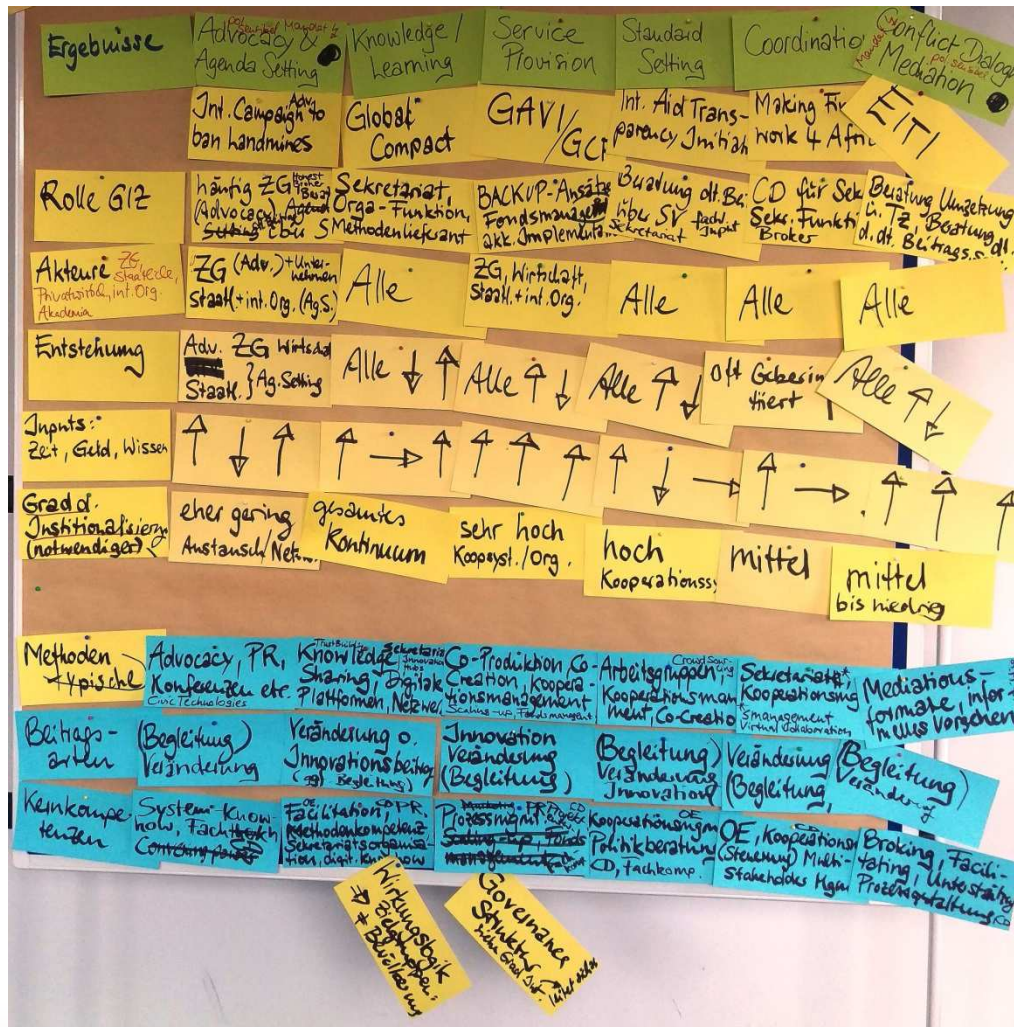 Ergebnisse
Advocacy &
Agenda Setting
Knowledge /
Learning
Service
Provision
Standard
Setting
Coordinatio
Conflict Dialog
politischei
Mediation
Int. Campaign to
Adv.
ban landmines
Global
Compact
GAVI/
Int. Aid Trans-
parency Initiati
Making Fi
work 4 Afri
EITI
Rolle GIZ
häufig ZG
Honest
Broker
(Advocacy)
über S
Sekretariat,
Orga-Funktion,
Methodenlieferant
BACKUP-Ansätze
Fondsmanagem
akk. Implementa..
Beratung dt. Bei
über SV
Sekretariat
fachl.
Input
CD für Sek
Sekr. Funkti
Broker
Beratung Umsetzung
ü. TZ, Beratung dt.
d. dt. Beitrags
Akteure ZG,
Staatliche,
Privatwirtsch, int. Org.
Akademia
ZG (Adv.) + Unter-
nehmen
Staatl. + int. Org. (Ag.S.)
Alle
ZG, Wirtschaft,
Staatl. + int. Org.
Alle
Alle
Alle
Entstehung
Adv. ZG Wirtscha
Staatl. } Ag. Setting
Alle ↓ ↑
Alle ↑ ↓
Alle ↑ ↓
oft Geberin
tiiert
Alle ↑ ↓
Inputs:
Zeit, Geld, Wissen
↑ ↓ ↑
↑ → ↑
↑ ↑ ↑
↑ ↓ →
↑ → ↑
↑ ↑
Grad d.
Institionalisierg
(notwendiger)
eher gering
Austausch/Netzw
gesamtes
Kontinuum
sehr hoch
Koopsyst./Org.
hoch
Kooperationssy
mittel
mittel
bis niedrig
Methoden
typische
Advocacy, PR,
Konferenzen etc.
Civic Technologies
Trustbuilding
Knowledge
Sekretaria
Innovation
Hubs
Sharing, Digitale
Plattformen, Netzwe
Co-Produktion, Co-
Creation, Koopera-
tionsmanagement
Scaling-up, Fondsmangent
Crowd Sour
cing
Arbeitsgruppen,
Kooperationsmana
ment, Co-Creatio
Sekretariats
Kooperationsmg
smanagement
Virtual Collaboration
Mediations-
formate, infor-
melles Vorgehen
Beitrags-
arten
(Begleitung)
Veränderung
Veränderung o.
Innovationsbeitrag
(ggf. Begleitung)
Innovation
Veränderung
(Begleitung)
(Begleitung)
Veränderung
Innovation
Veränderung
(Begleitung,
(Begleitung)
Veränderung
Kernkompe-
tenzen
System-Know-
how, Fach
Convening power
OE
CD PR
Facilitation,
Methodenkompetenz
Sekretariatsorganisa-
tion, digit. Know how
Marketing PR CD
Prozessmgmt.
Scaling-up, Fonds
management
OE
Kooperationsmgm
Politikberatung
CD, Fachkomp.
CD
OE, Kooperations
(Steuerung) Multi-
Stakeholder Mgm
Broking, Facili-
tating, Unterstützung
Prozessgestaltung, CD
Wirkungslogik
⇒ Zielgruppen
≠ Bevölkerung
Governance
Struktur
siehe Grad Inst.